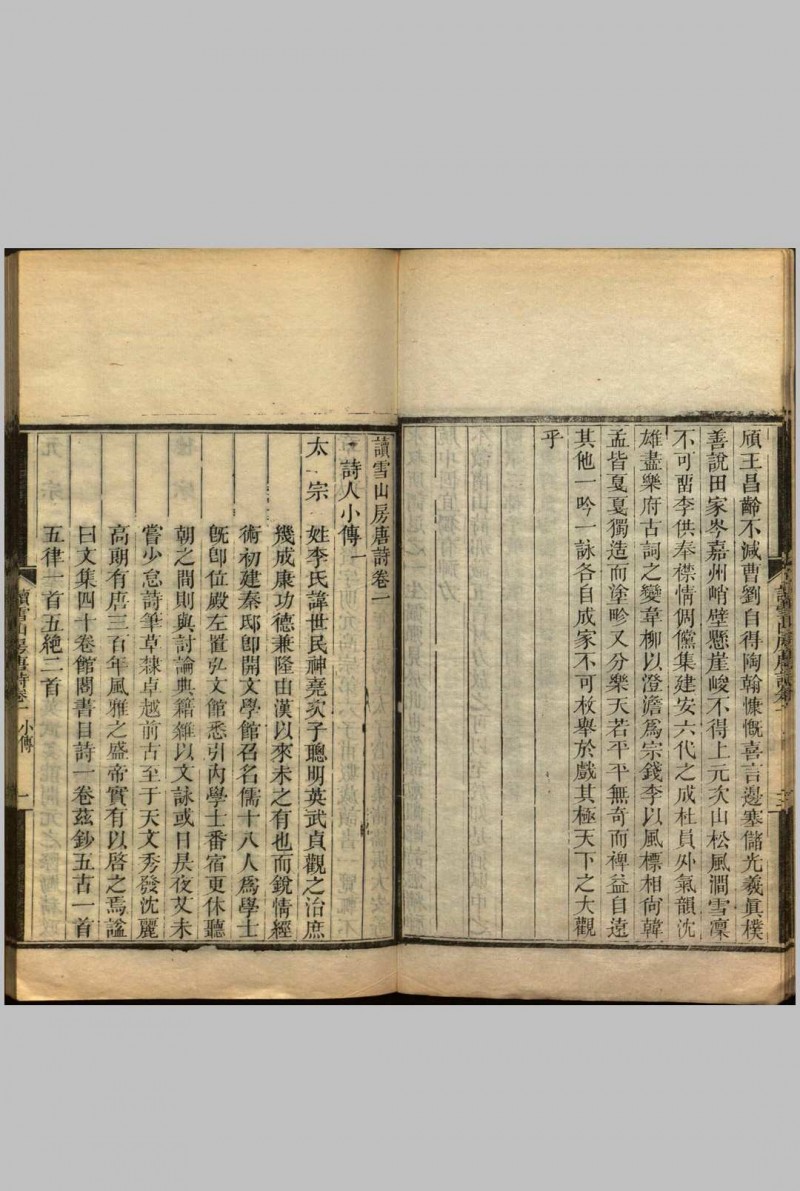 頎王昌齡不減曹劉自得陶翰慷慨喜言邊塞儲光羲眞樸
善說田家岑嘉州峭壁懸崖峻不得上元次山松風澗雪凜
不可畱李供奉襟情倜儻集建安六代之成杜員外氣韻沈
雄盡樂府古詞之變韋柳以澄澹爲宗錢李以風標相尙韓
孟皆戛戛獨造而塗畛又分樂天若平平無奇而裨益自遠
其他一吟一詠各自成家不可枚舉於戲其極天下之大觀
乎
讀雪山房唐詩卷一
詩人小傳一
太宗 姓李氏諱世民神堯次子聰明英武貞觀之治庶
幾成康功德兼隆由漢以來未之有也而銳情經
術初建秦邸卽開文學館召名儒十八人爲學士
旣卽位殿左置弘文館悉引內學士番宿更休聽
朝之間則與討論典籍雜以文詠或日昃夜艾未
嘗少怠詩筆草隸卓越前古至于天文秀發沈麗
高朗有唐三百年風雅之盛帝實有以啓之焉諡
曰文集四十卷館閣書目詩一卷茲鈔五古一首
五律一首五絕二首
讀雪山房唐詩卷一 小傳 一